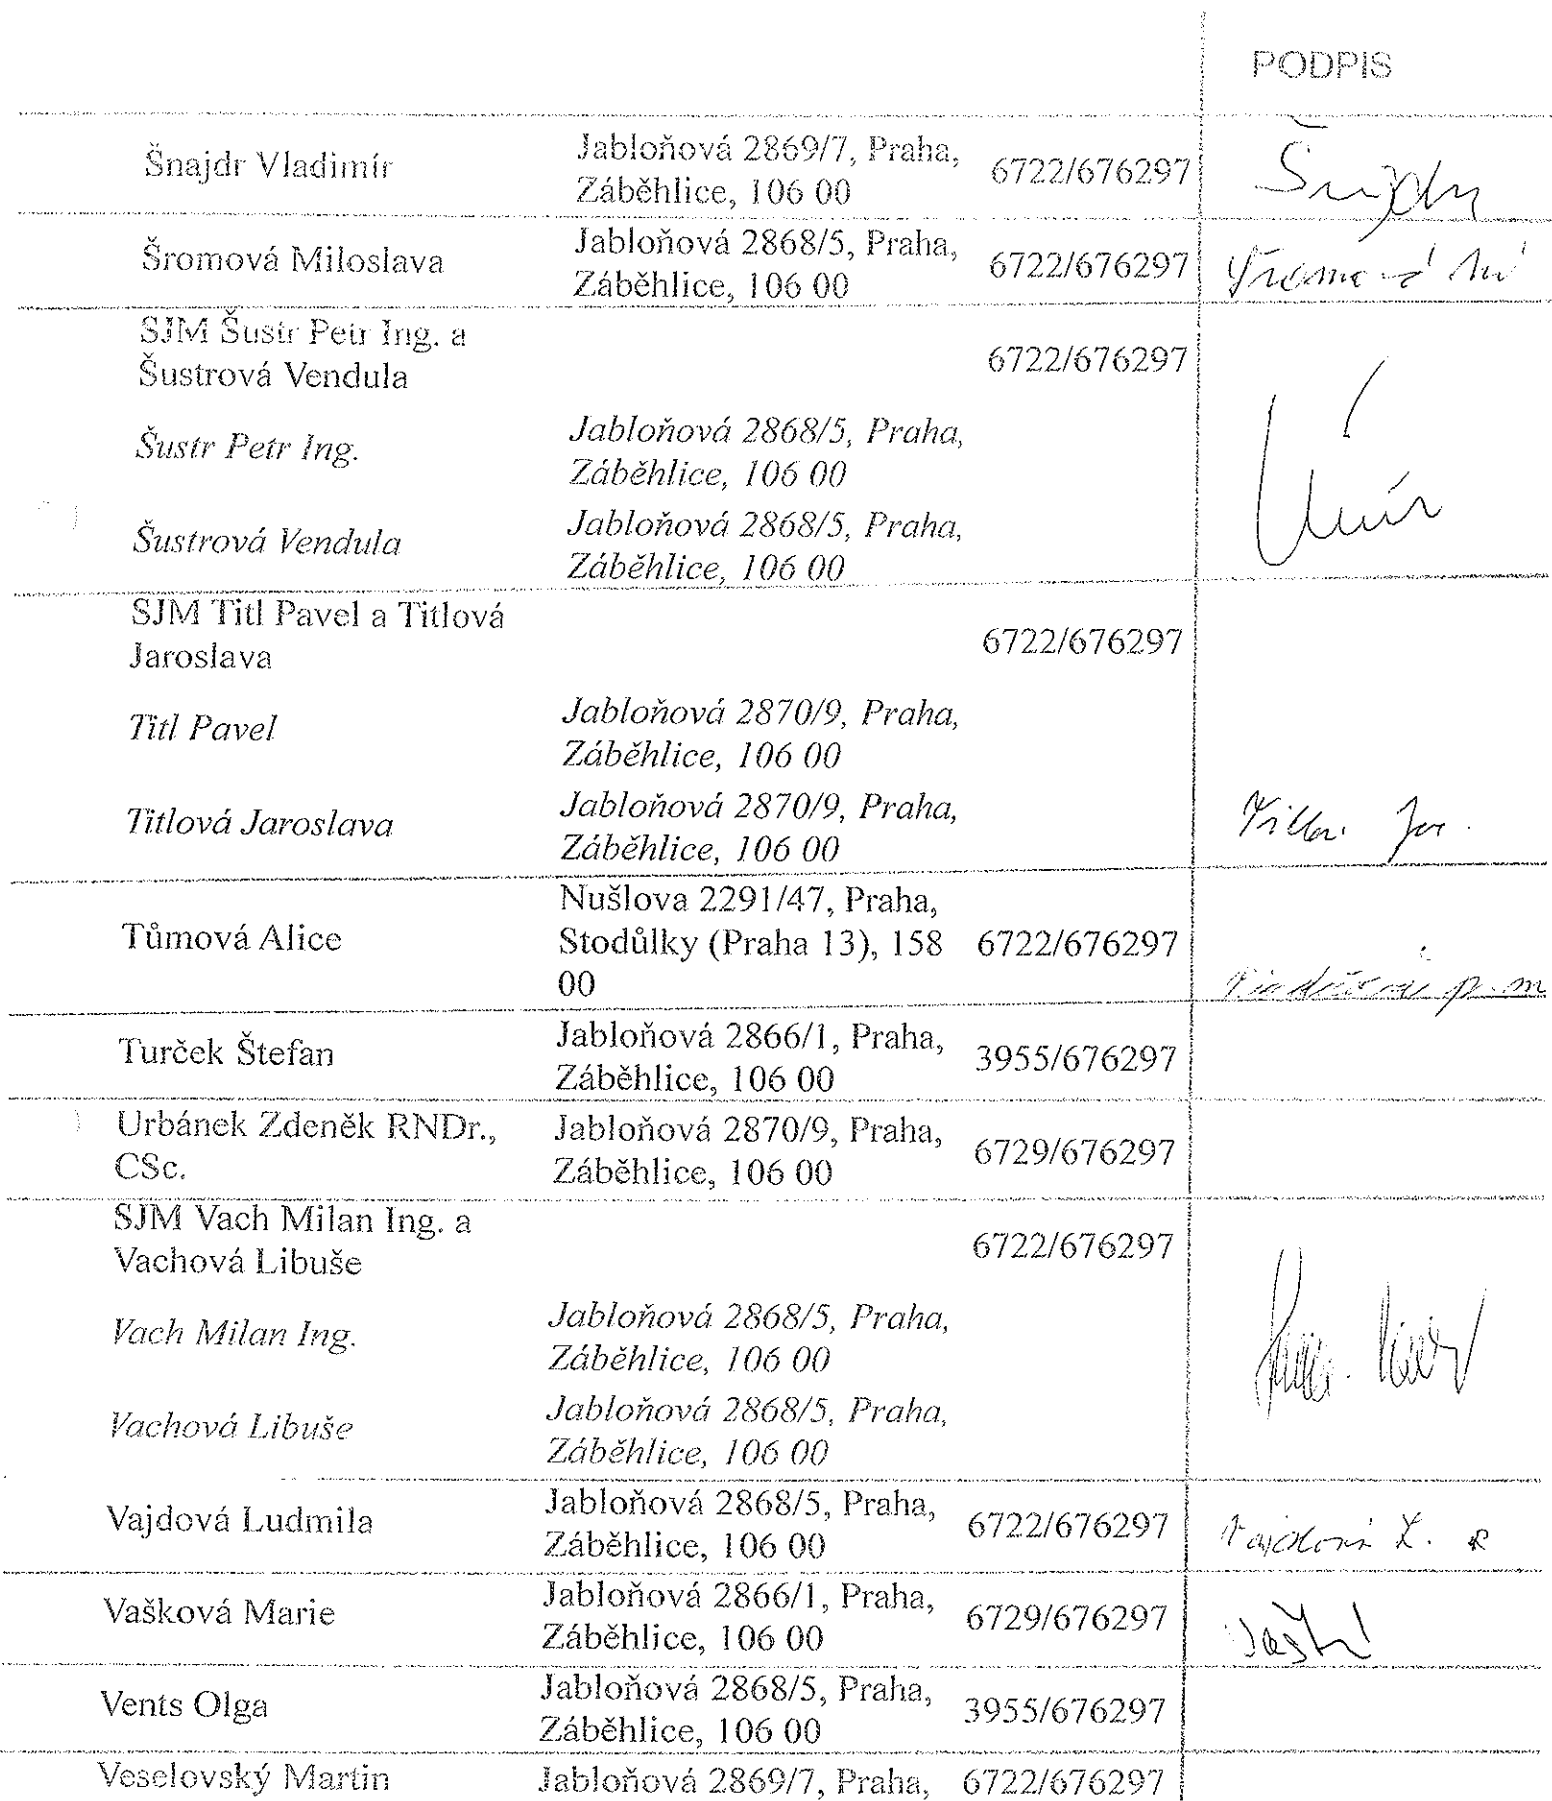 PODPIS
Šnajdr Vladimír
Jabloňová 2869/7, Praha,
Záběhlice, 106 00
6722/676297
Šromová Miloslava
Jabloňová 2868/5, Praha,
Záběhlice, 106 00
6722/676297
SJM Šustr Petr Ing. a
Šustrová Vendula
6722/676297
Šustr Petr Ing.
Jabloňová 2868/5, Praha,
Záběhlice, 106 00
Šustrová Vendula
Jabloňová 2868/5, Praha,
Záběhlice, 106 00
SJM Titl Pavel a Titlová
Jaroslava
6722/676297
Titl Pavel
Jabloňová 2870/9, Praha,
Záběhlice, 106 00
Titlová Jaroslava
Jabloňová 2870/9, Praha,
Záběhlice, 106 00
Tůmová Alice
Nušlova 2291/47, Praha,
Stodůlky (Praha 13), 158
00
6722/676297
Turček Štefan
Jabloňová 2866/1, Praha,
Záběhlice, 106 00
3955/676297
Urbánek Zdeněk RNDr.,
CSc.
Jabloňová 2870/9, Praha,
Záběhlice, 106 00
6729/676297
SJM Vach Milan Ing. a
Vachová Libuše
6722/676297
Vach Milan Ing.
Jabloňová 2868/5, Praha,
Záběhlice, 106 00
Vachová Libuše
Jabloňová 2868/5, Praha,
Záběhlice, 106 00
Vajdová Ludmila
Jabloňová 2868/5, Praha,
Záběhlice, 106 00
6722/676297
Vajdová L.
Vašková Marie
Jabloňová 2866/1, Praha,
Záběhlice, 106 00
6729/676297
Vents Olga
Jabloňová 2868/5, Praha,
Záběhlice, 106 00
3955/676297
Veselovský Martin
Jabloňová 2869/7, Praha,
6722/676297